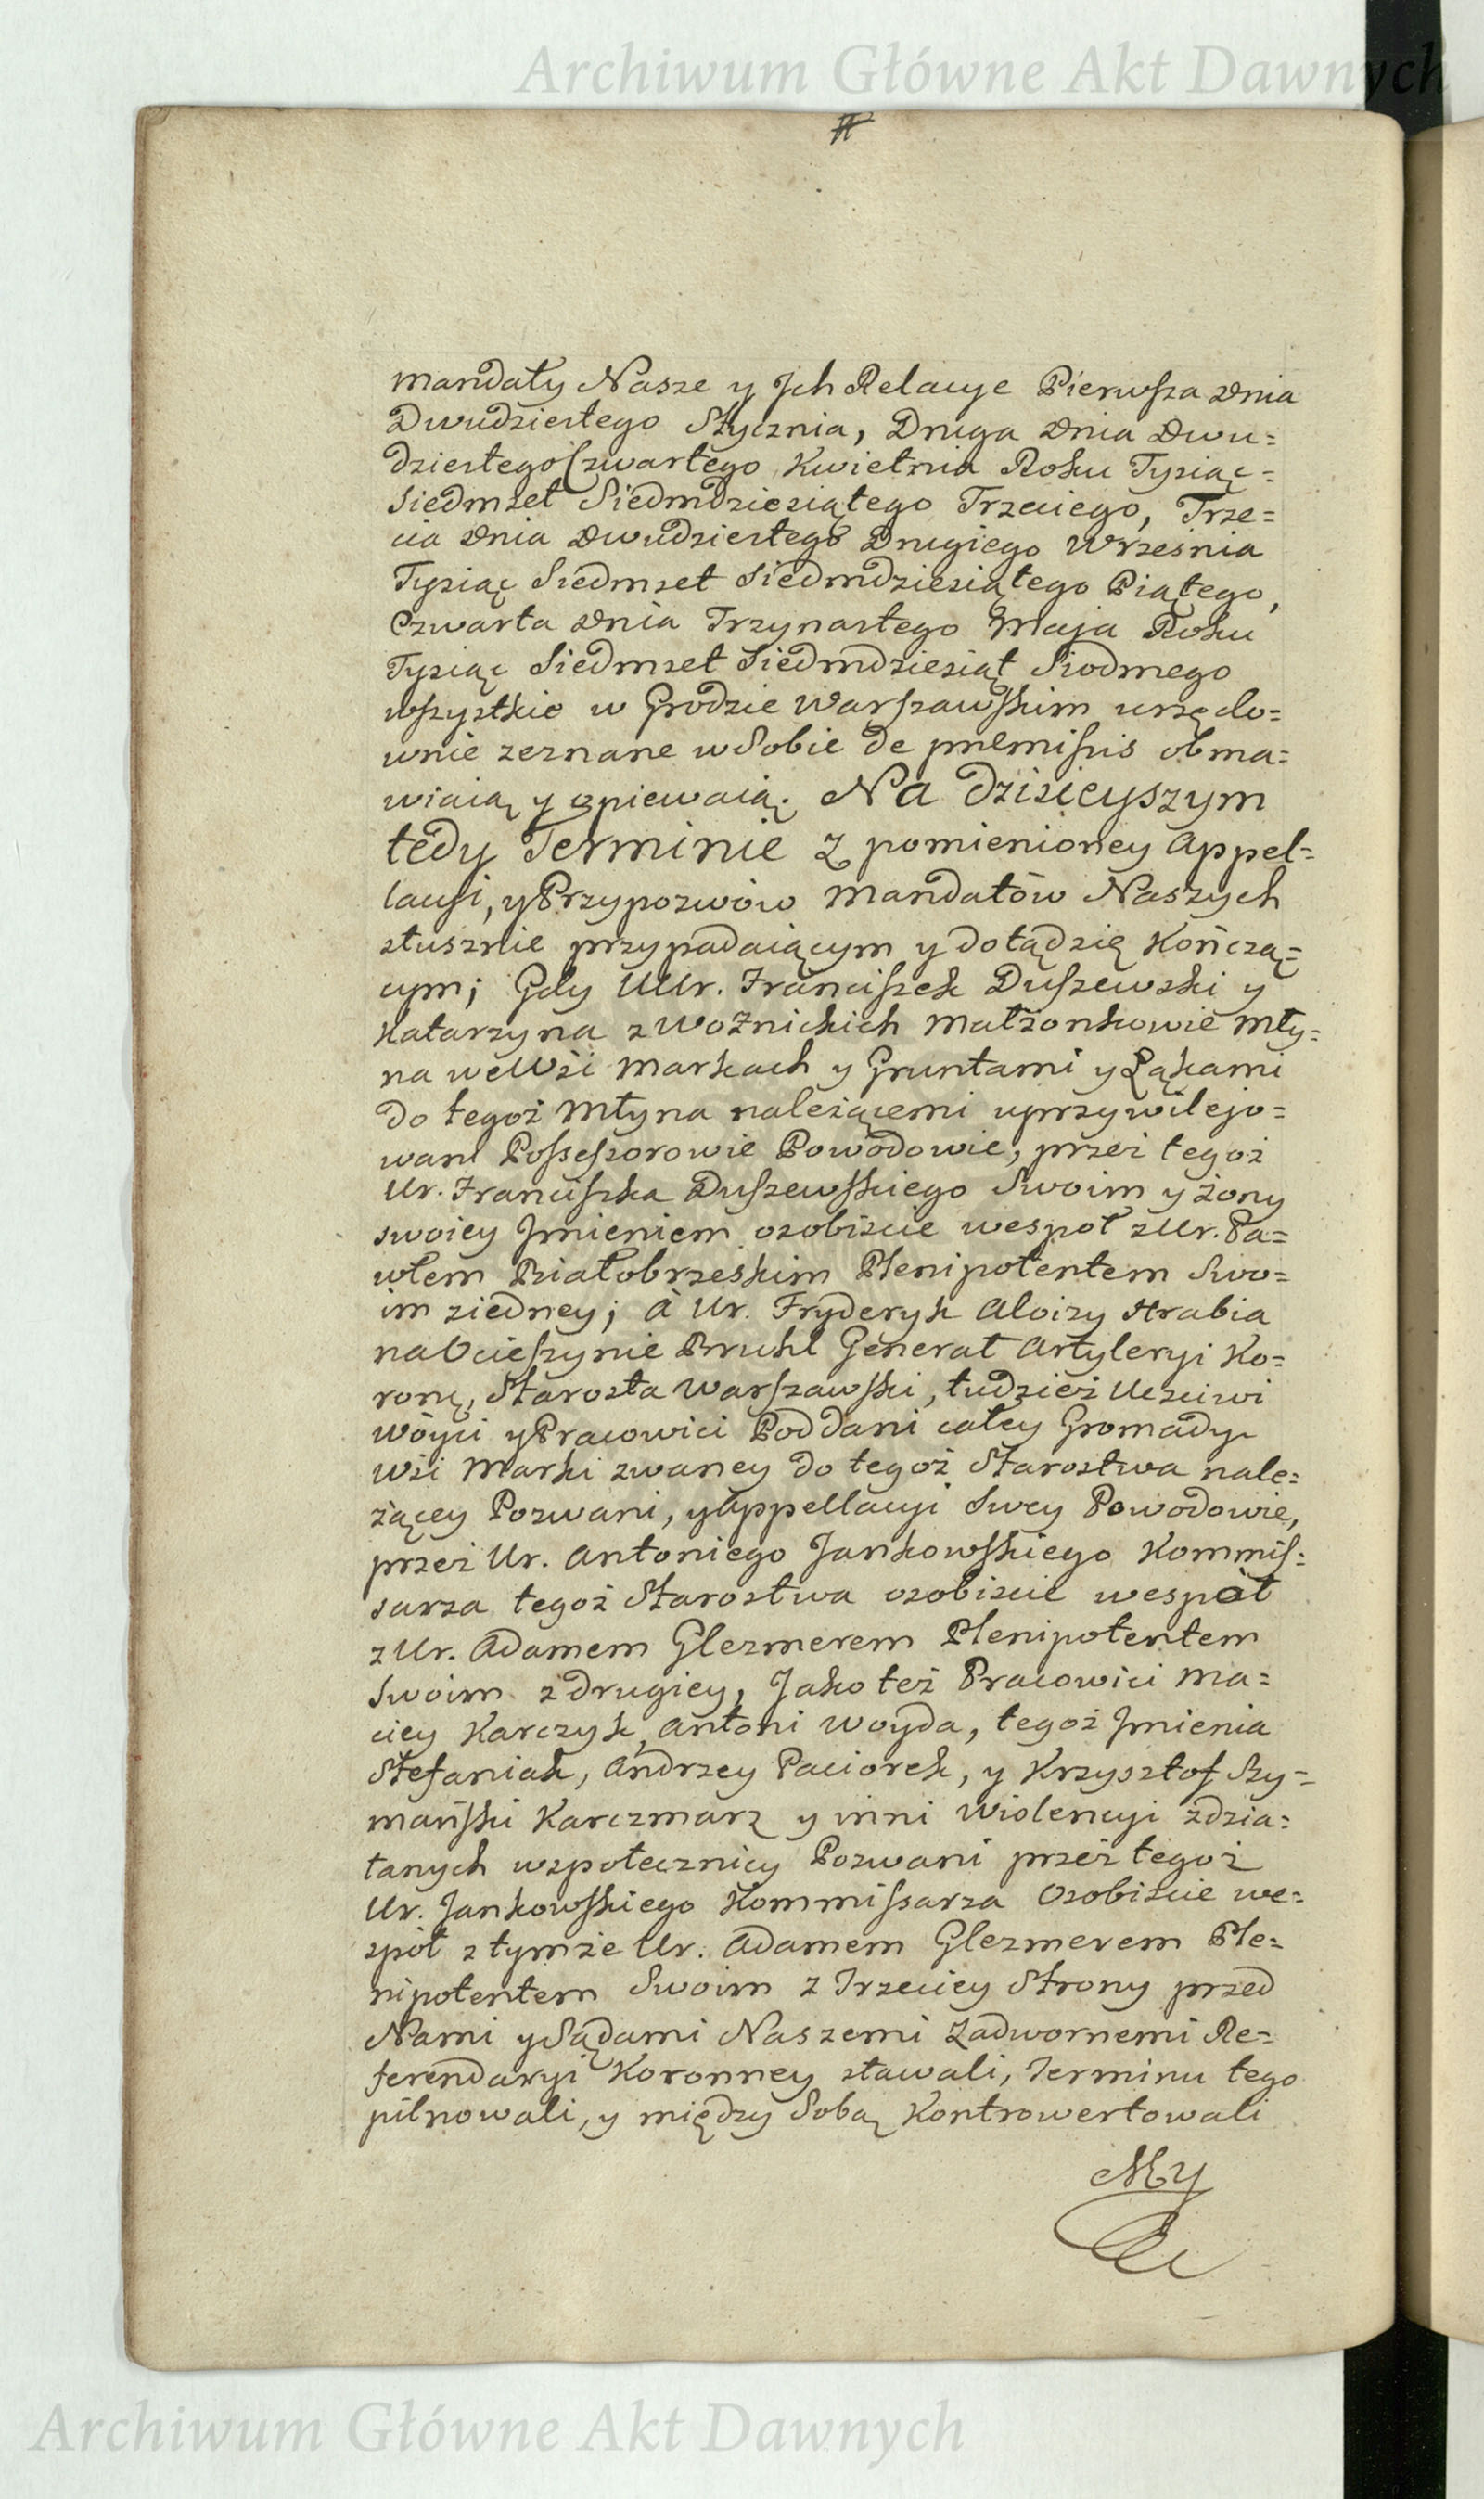 Archiwum Główne Akt Dawnych
mandaty Nasze y Jch Relacye Pierwsza dnia
Dwudziestego Stycznia, Druga dnia Dwu=
dziestego Czwartego Kwietnia Roku Tysiąc=
Siedmset Siedmdziesiątego Trzeciego, Trze=
cia dnia Dwudziestego Drugiego Wrzesnia
Tysiąc Siedmset Siedmdziesiątego Piątego,
Czwarta dnia Trzynastego Maja Roku
Tysiąc Siedmset Siedmdziesiąt Siodmego
wszystkie w Grodzie Warszawskim urzędo=
wnie zeznane w Sobie de praemissis obma=
wiaią y opiewaią. Na dzisieyszym
tedy Terminie z pomienioney Appel=
lacyi, y Przypozwów Mandatów Naszych
słusznie przypadaiącym y dotądzię Kończą=
cym; Gdy UUr. Franciszek Duszewski y
Katarzyna z Woźnickich Małżonkowie Mły=
na we Wsi Markach y Gruntami y Łąkami
do tegoż Młyna należącemi uprzywilejo=
wani Possessorowie Powodowie, przez tegoż
Ur. Franciszka Duszewskiego Swoim y Żony
swoiey Jmieniem osobiscie wespoł z Ur. Pa=
włem Białobrzeskim Plenipotentem Swo=
im ziedney; à Ur. Fryderyk Aloizy Hrabia
na Ocieszynie Bruhl Generał Artyleryi Ko=
ronę, Starosta Warszawski, tudzież Uczciwi
Wòyci y Pracowici Poddani całey Gromady
Wsi Marki zwaney do tegoż Starostwa nale=
żącey Pozwani, y Appellacyi Swey Powodowie,
przez Ur. Antoniego Jankowskiego Kommis=
sarza tegoż Starostwa osobiscie wespòł
z Ur. Adamem Glezmerem Plenipotentem
Swoim z drugiey, Jako też Pracowici Ma=
ciey Karczyk, Antoni Woyda, tegoż Jmienia
Stefaniak, Andrzey Paciorek, y Krzysztof Szy=
mański Karczmarz y inni Wiolencyi zdzia=
łanych wspołecznicy Pozwani przez tegoż
Ur. Jankowskiego Kommissarza Osobiscie we=
spół z tymże Ur. Adamem Glezmerem Ple=
nipotentem Swoim z Trzeciey Strony przed
Nami y Sądami Naszemi Zadwornemi Re=
ferendaryi Koronney stawali, Terminu tego
pilnowali, y między Sobą Kontrowertowali
My
Archiwum Główne Akt Dawnych